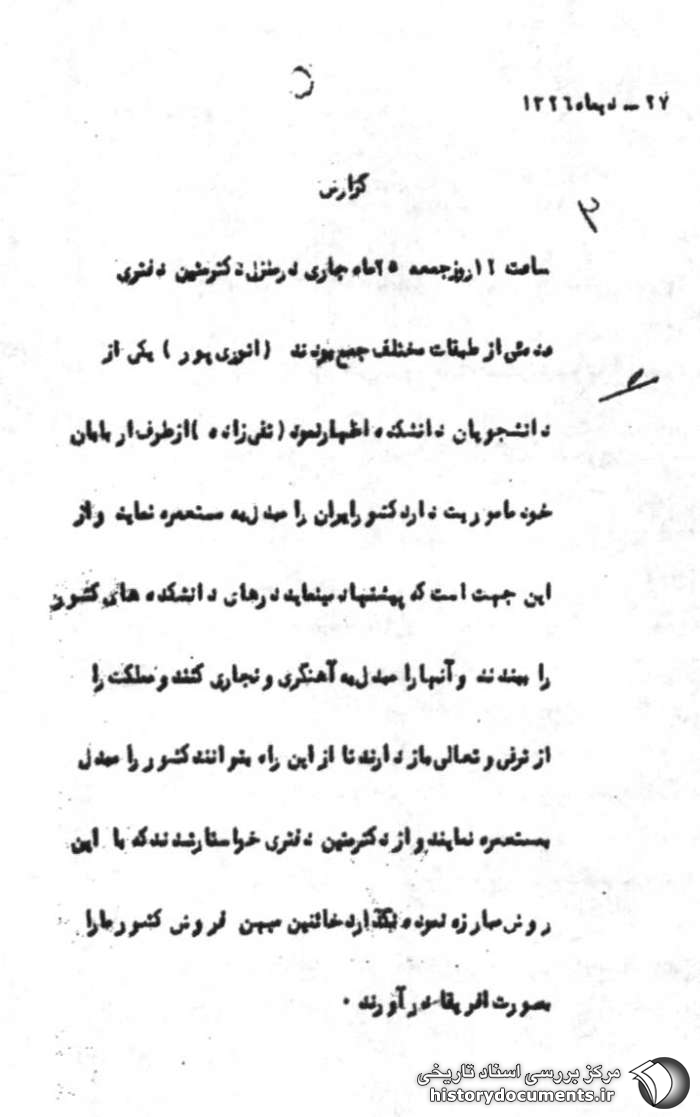 ۲۷ ـ دیماه ۱۳۲۶
گزارش
ساعت ۱۲ روز جمعه ۲۵ ماه جاری در منزل دکتر متین دفتری
عده‌ئی از طبقات مختلف جمع بودند (انوری پور) یکی از
دانشجویان دانشکده اظهار نمود (تقی زاده) از طرف اربابان
خود ماموریت دارد کشور ایران را مبدل به مستعمره نماید و از
این جهت است که پیشنهاد مینماید درهای دانشکده های کشور
را ببندند و آنها را مبدل به آهنگری و نجاری کنند و مملکت را
از ترقی و تعالی باز دارند تا از این راه بتوانند کشور را مبدل
بمستعمره نمایند و از دکتر متین دفتری خواستار شدند که با این
روش مبارزه نموده نگذارد خائنین میهن فروش کشور ما را
بصورت افریقا در آورند .
مرکز بررسی اسناد تاریخی
historydocuments.ir